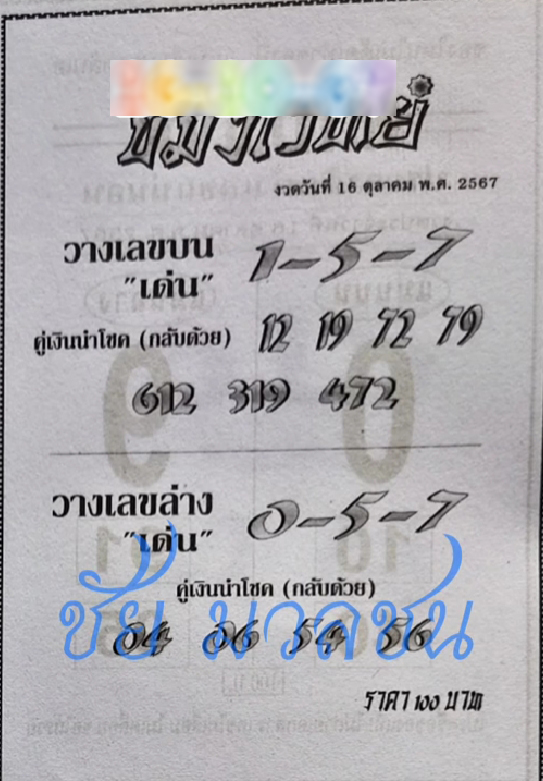 งวดวันที่ 16 ตุลาคม พ.ศ. 2567
วางเลขบน "เด่น" 1-5-7
คู่เงินนำโชค (กลับด้วย) 12 19 72 79
612 319 472
วางเลขล่าง "เด่น" 0-5-7
คู่เงินนำโชค (กลับด้วย)
04 06 54 56
ชัย มวลชน
ราคา ๑๐๐ บาท